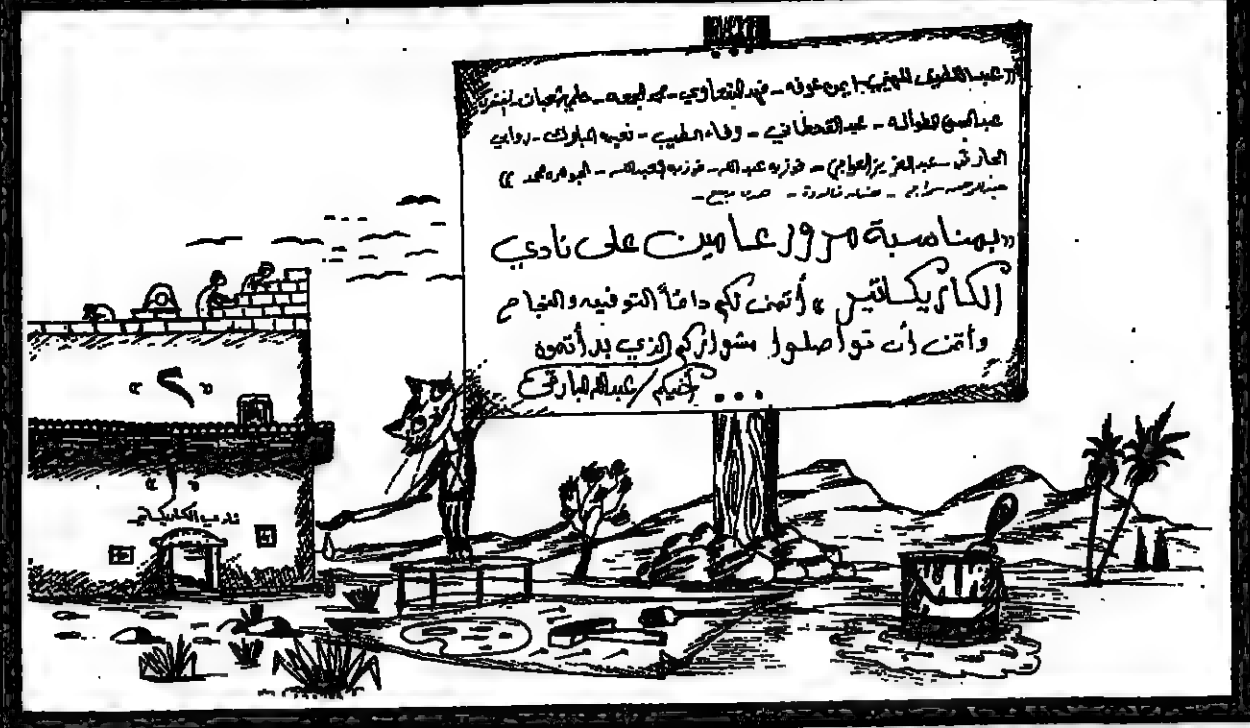 عبد اللطيف - ايمن عوفه - فهد - محمد الجمعه -
عبدالمحسن الطواله - عبدالله القحطاني - وفاء الطيب - نعيمه المبارك - روابي
الحارثي - عبدالعزيز العواجي - فوزيه عبدالله - فوزيه عبدالله - الجوهره محمد »
عبدالرحمن سراج -
«بمناسبة مرور عامين على نادي
الكاريكاتير » أتمنى لكم دائماً التوفيق والنجاح
وأتمنى أن تواصلوا مشواركم الذي بدأتموه
أخيكم / عبدالله البارقي ...
« ٢ »
« ١ »
نادي الكاريكاتير